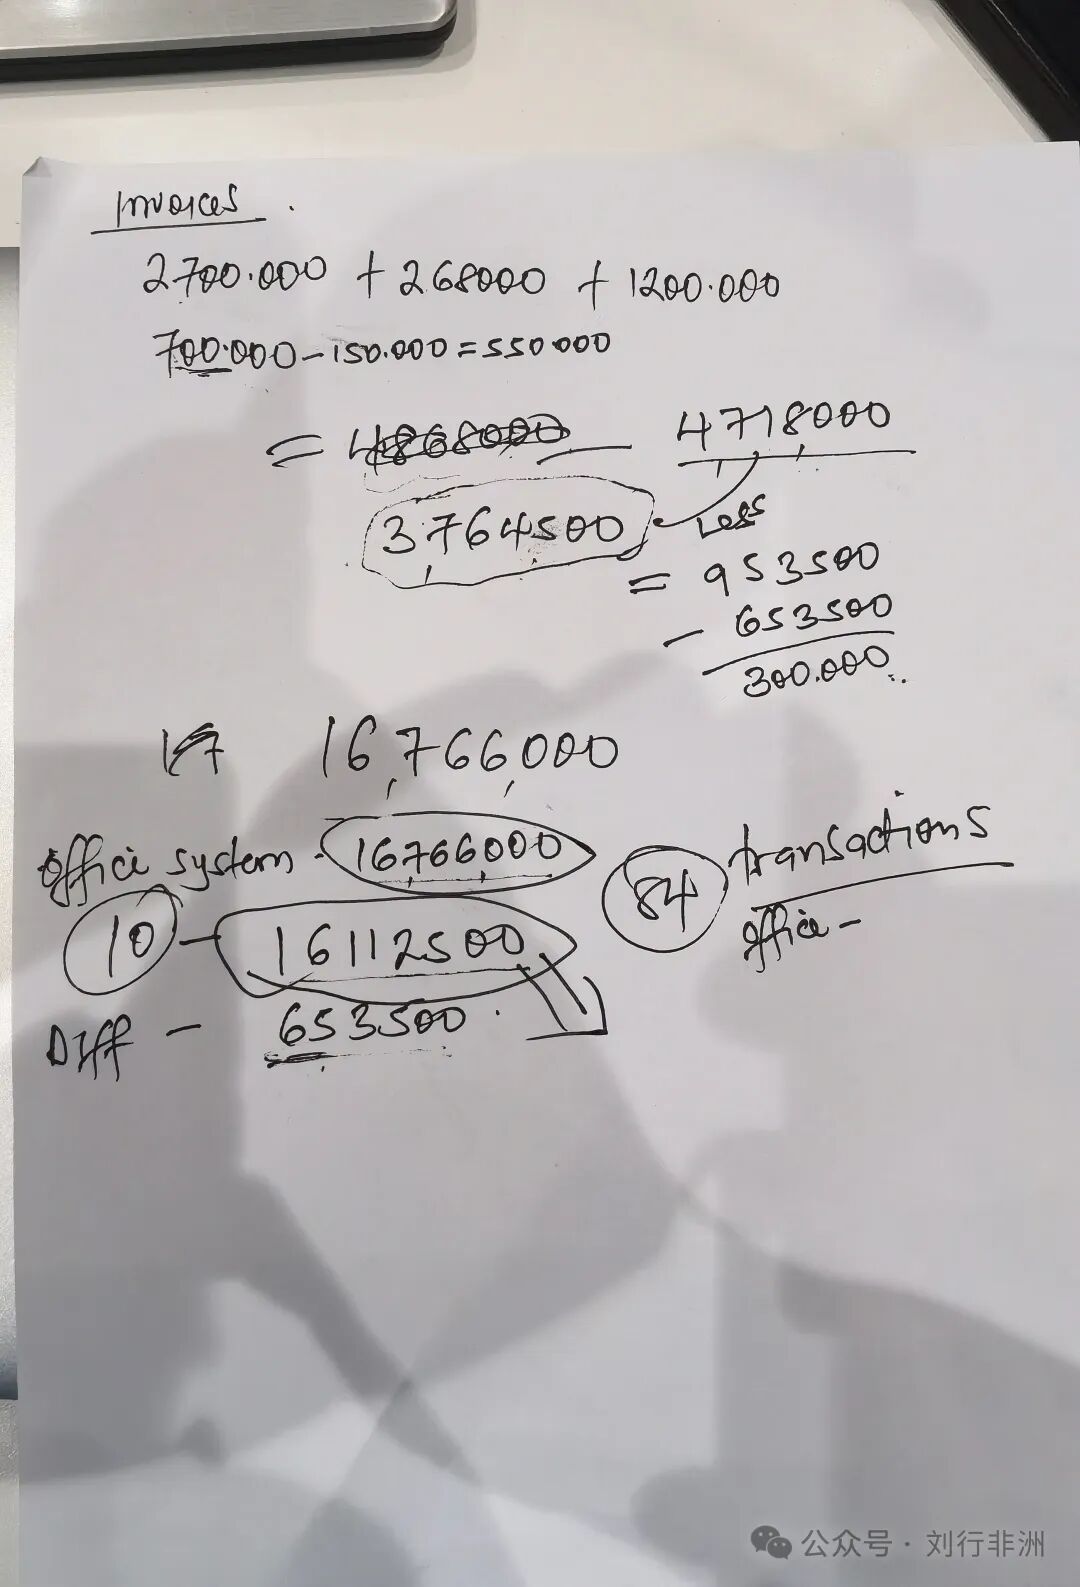 Invoices.
2700.000 + 268000 + 1200.000
700.000 - 150.000 = 550000
= 4868000 4718000
3764500 Less
= 953500
- 653500
300.000
17 16,766,000
Office system - 16766000
84 transactions
office -
10 - 16112500
Diff - 653500
公众号 · 刘行非洲